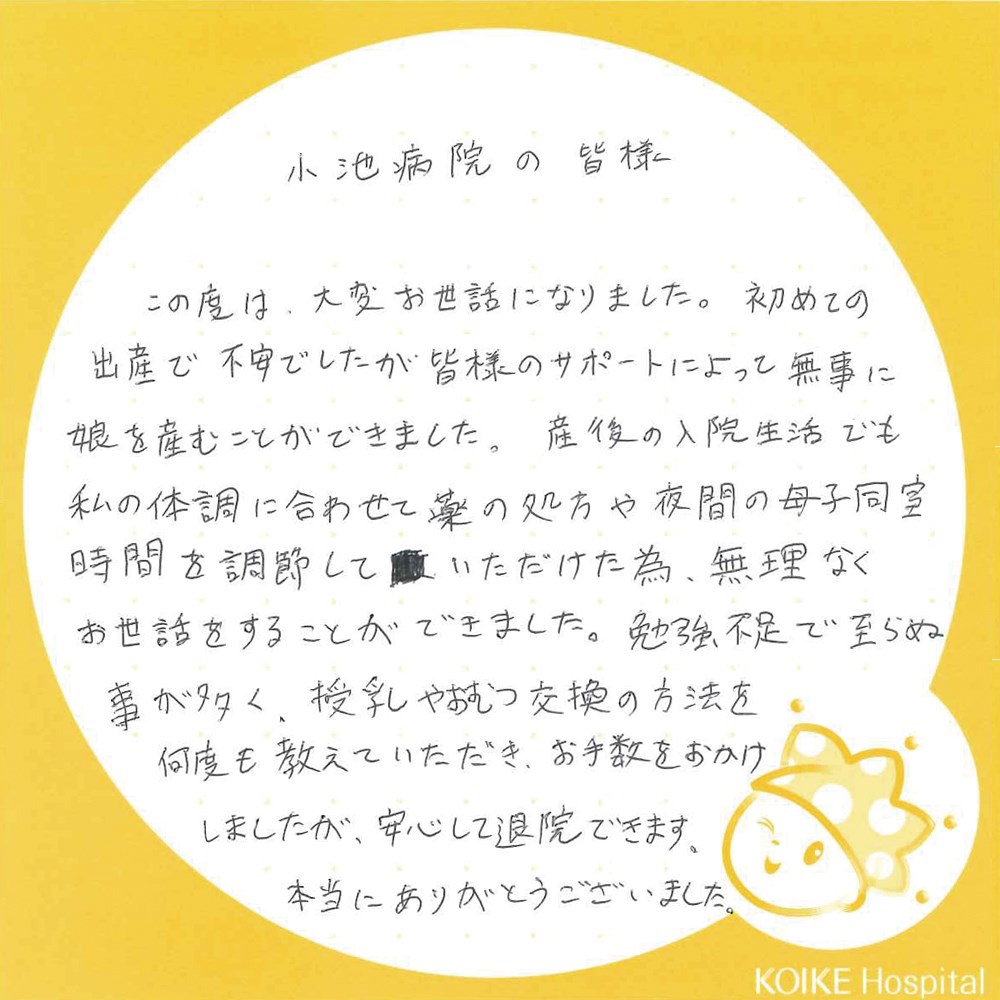 小池病院の皆様
この度は、大変お世話になりました。初めての
出産で不安でしたが皆様のサポートによって無事に
娘を産むことができました。産後の入院生活でも
私の体調に合わせて薬の処方や夜間の母子同室
時間を調節していただけた為、無理なく
お世話をすることができました。勉強不足で至らぬ
事が多く、授乳やおむつ交換の方法を
何度も教えていただき、お手数をおかけ
しましたが、安心して退院できます。
本当にありがとうございました。
KOIKE Hospital